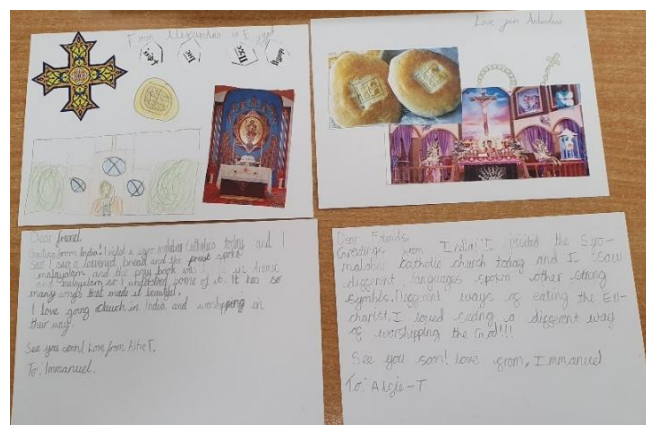 From Alexandria in E ypt
Love from
Dear friend,
Greetings from India! I visited a syro malabar catholics today and I
saw I saw a leavened bread and the priest spoke
malayalam and the pray book was in
and malayalam so I understood some of it. It has so
many songs that made it beautiful.
I love going church in India and worshipping in
their way.
See you soon! Love from Alfie T.
To: Immanuel.
Dear Friends,
Greetings from India! I visited the Syro-
malabar Catholic church today and I saw
different languages spoken other strong
symbols. Different ways of eating the Eu-
charist. I loved seeing a different way
of worshipping the God!!!
See you soon! love from, Immanuel
To: Alfie-T